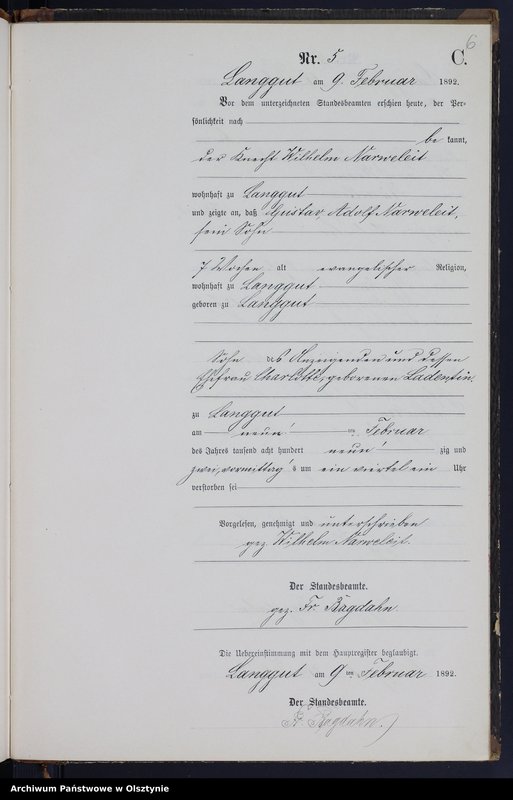 6
Nr. 5 C.
Langgut am 9. Februar 1892.
Vor dem unterzeichneten Standesbeamten erschien heute, der Per-
sönlichkeit nach
be kannt,
der Knecht Wilhelm Narweleit
wohnhaft zu Langgut
und zeigte an, daß Gustav Adolf Narweleit,
sein Sohn
7 Wochen alt evangelischer Religion,
wohnhaft zu Langgut
geboren zu Langgut
Sohn des Anzeigenden und dessen
Ehefrau Charlotte, geborenen Ladentin,
zu Langgut
am neun ten Februar
des Jahres tausend acht hundert neun zig und
zwei, vormittag s um ein viertel ein Uhr
verstorben sei
Vorgelesen, genehmigt und unterschrieben
gez. Wilhelm Narweleit.
Der Standesbeamte.
gez. Fr. Bagdahn.
Die Uebereinstimmung mit dem Hauptregister beglaubigt.
Langgut am 9 ten Februar 1892.
Der Standesbeamte.
Fr. Bagdahn.
Archiwum Państwowe w Olsztynie